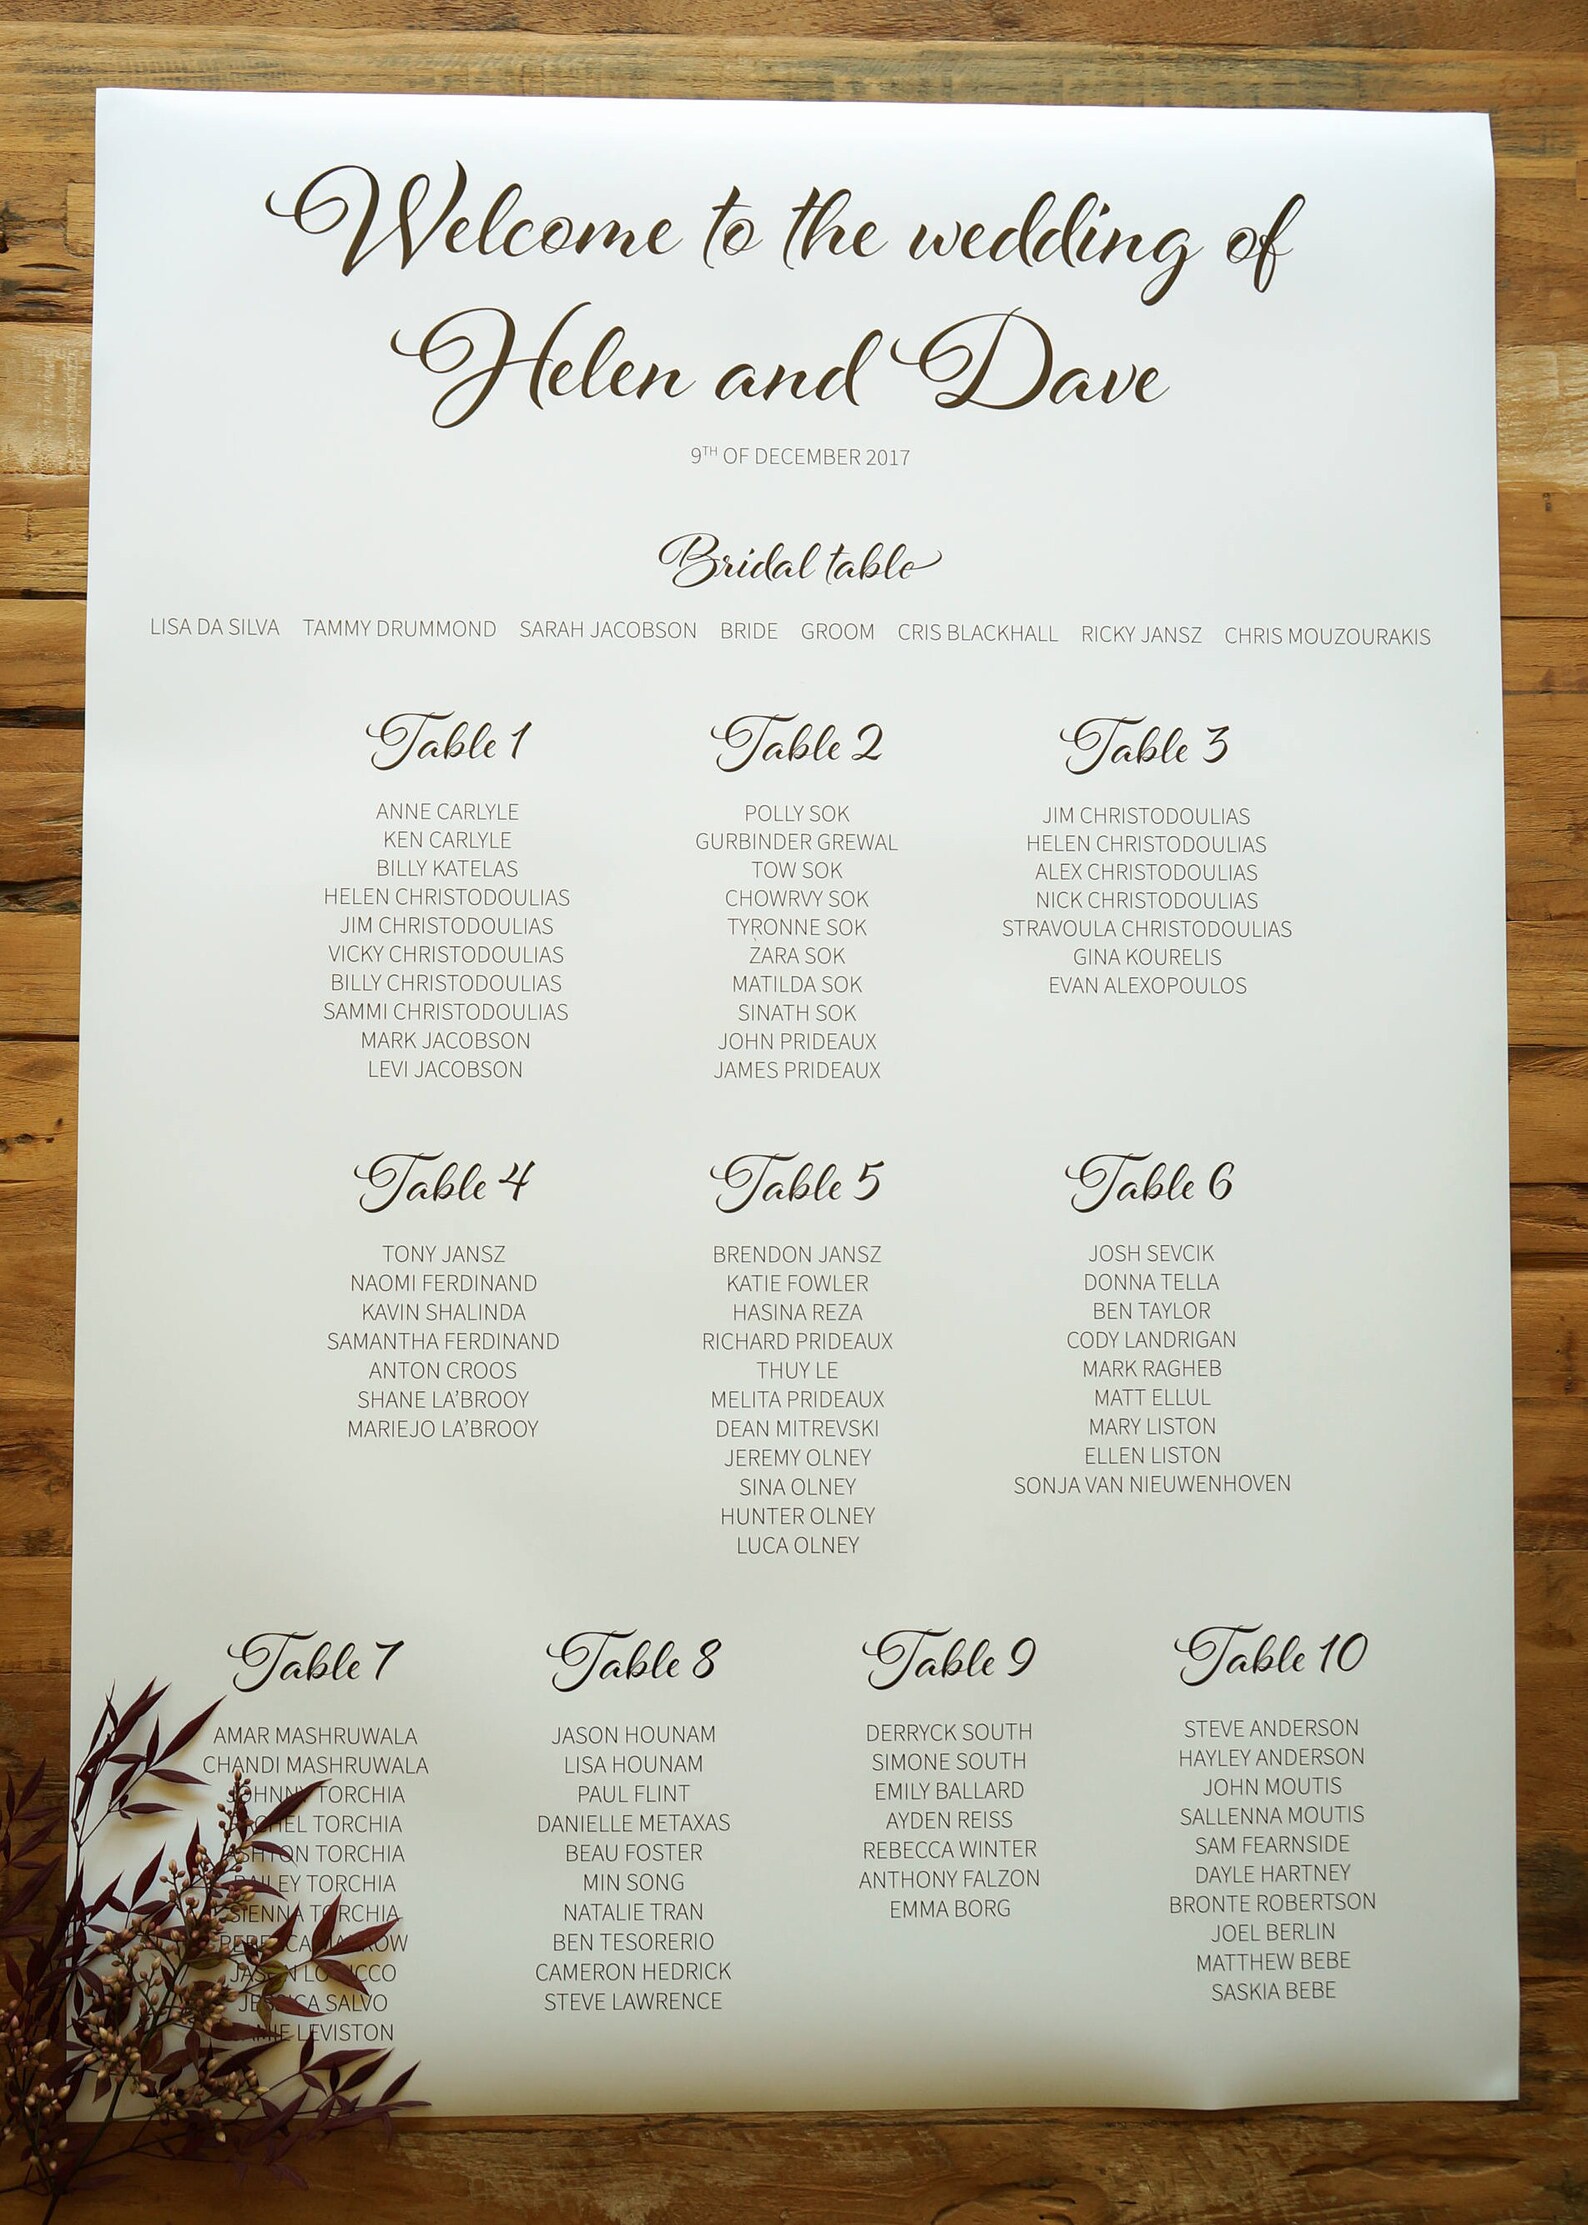 Welcome to the wedding of
Helen and Dave
9TH OF DECEMBER 2017
Bridal table
LISA DA SILVA TAMMY DRUMMOND SARAH JACOBSON BRIDE GROOM CRIS BLACKHALL RICKY JANSZ CHRIS MOUZOURAKIS
Table 1
ANNE CARLYLE
KEN CARLYLE
BILLY KATELAS
HELEN CHRISTODOULIAS
JIM CHRISTODOULIAS
VICKY CHRISTODOULIAS
BILLY CHRISTODOULIAS
SAMMI CHRISTODOULIAS
MARK JACOBSON
LEVI JACOBSON
Table 2
POLLY SOK
GURBINDER GREWAL
TOW SOK
CHOWRVY SOK
TYRONNE SOK
ZARA SOK
MATILDA SOK
SINATH SOK
JOHN PRIDEAUX
JAMES PRIDEAUX
Table 3
JIM CHRISTODOULIAS
HELEN CHRISTODOULIAS
ALEX CHRISTODOULIAS
NICK CHRISTODOULIAS
STRAVOULA CHRISTODOULIAS
GINA KOURELIS
EVAN ALEXOPOULOS
Table 4
TONY JANSZ
NAOMI FERDINAND
KAVIN SHALINDA
SAMANTHA FERDINAND
ANTON CROOS
SHANE LA’BROOY
MARIEJO LA’BROOY
Table 5
BRENDON JANSZ
KATIE FOWLER
HASINA REZA
RICHARD PRIDEAUX
THUY LE
MELITA PRIDEAUX
DEAN MITREVSKI
JEREMY OLNEY
SINA OLNEY
HUNTER OLNEY
LUCA OLNEY
Table 6
JOSH SEVCIK
DONNA TELLA
BEN TAYLOR
CODY LANDRIGAN
MARK RAGHEB
MATT ELLUL
MARY LISTON
ELLEN LISTON
SONJA VAN NIEUWENHOVEN
Table 7
AMAR MASHRUWALA
CHANDI MASHRUWALA
JOHNNY TORCHIA
TORCHIA
ASHTON TORCHIA
TORCHIA
SIENNA TORCHIA
JASON
JESSICA SALVO
LEVISTON
Table 8
JASON HOUNAM
LISA HOUNAM
PAUL FLINT
DANIELLE METAXAS
BEAU FOSTER
MIN SONG
NATALIE TRAN
BEN TESORERIO
CAMERON HEDRICK
STEVE LAWRENCE
Table 9
DERRYCK SOUTH
SIMONE SOUTH
EMILY BALLARD
AYDEN REISS
REBECCA WINTER
ANTHONY FALZON
EMMA BORG
Table 10
STEVE ANDERSON
HAYLEY ANDERSON
JOHN MOUTIS
SALLENNA MOUTIS
SAM FEARNSIDE
DAYLE HARTNEY
BRONTE ROBERTSON
JOEL BERLIN
MATTHEW BEBE
SASKIA BEBE